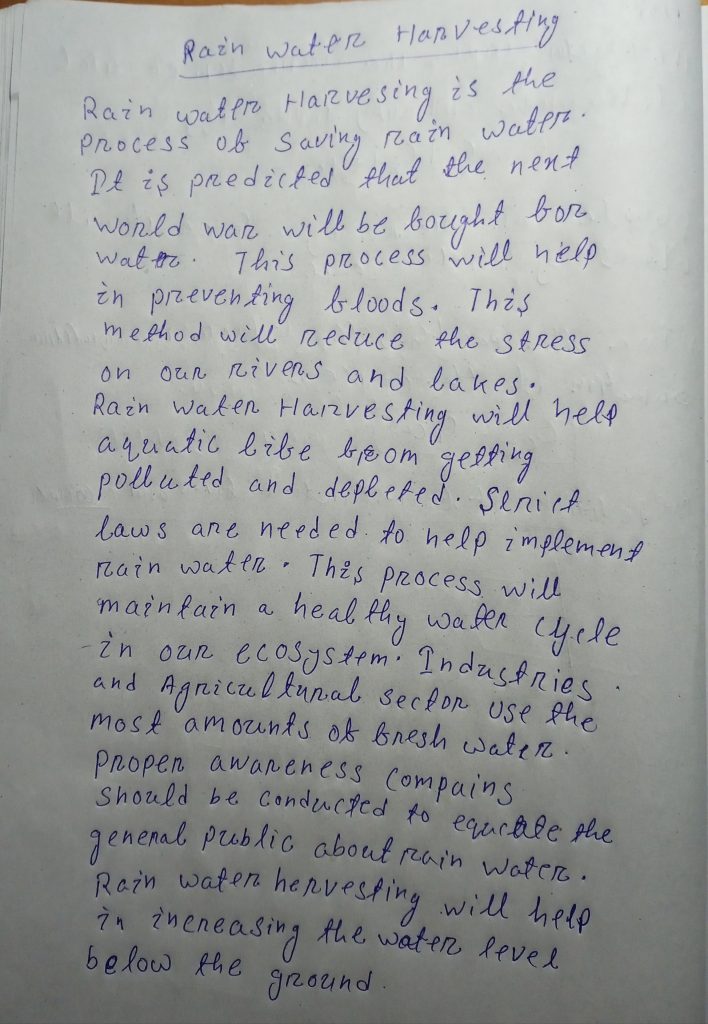 Rain water Harvesting
Rain water Harvesing is the
process of saving rain water.
It is predicted that the next
world war will be fought for
water. This process will help
in preventing floods. This
method will reduce the stress
on our rivers and lakes.
Rain water Harvesting will help
aquatic life from getting
polluted and depleted. Strict
laws are needed to help implement
rain water. This process will
maintain a healthy water cycle
in our ecosystem. Industries
and Agricultural sector use the
most amounts of fresh water.
proper awareness compains
should be conducted to equcate the
general public about rain water.
Rain water hervesting will help
in increasing the water level
below the ground.